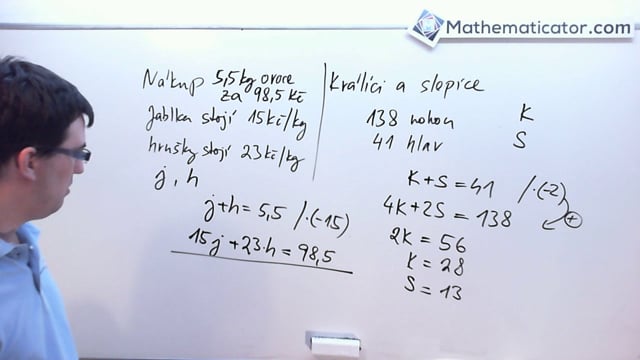 Mathematicator.com
Nákup 5,5kg ovoce
za 98,5 Kč
Jablka stojí 15 Kč/kg
hrušky stojí 23 Kč/kg
j, h
j+h = 5,5 /·(-15)
15j + 23·h = 98,5
Králíci a slepice
138 nohou K
41 hlav S
K+S = 41 /·(-2)
4K+2S = 138 +
2K = 56
K = 28
S = 13